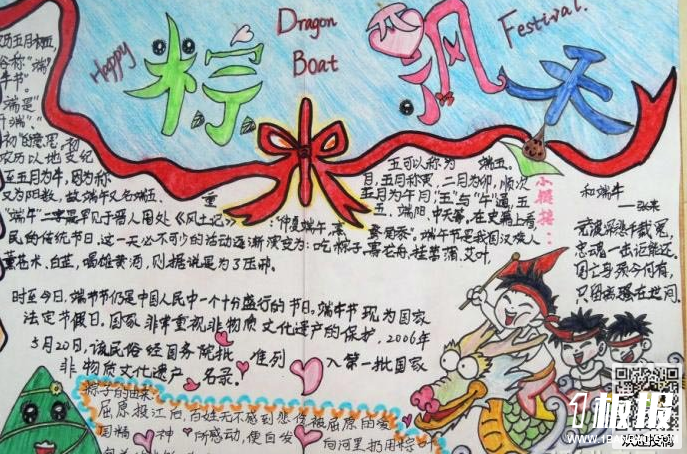 Happy
Dragon
Boat
Festival.
粽
飘
天
农历五月初五,
俗称"端
午节"
"端是"
开端"."
初"的意思,初
农历以地支纪
至五月为午,因为称
又为阳数,故端午又名端五、重
五可以称为 端五。
月,五月称爽,二月为卯,顺次
五月为午月"五"与"午"通,五
五、端阳、中天等,在史籍上看
"端午"二字最早见于晋人周处《风土记》:"仲夏端午,烹
民的传统节日,这一天必不可少的活动逐渐演变为:吃粽子,赛龙舟,挂菖蒲,艾叶,
薰苍术、白芷,喝雄黄酒,则据说是为了压邪.
端午节是我国汉族人
小链接:
和端午
——张耒
竞渡深悲千载冤,
忠魂一去讵能还。
国亡身殒今何有,
只留离骚在世间.
时至今日,端午节仍是中国人民中一个十分盛行的节日,端午节现为国家
法定节假日,国家非常重视非物质文化遗产的保护,2006年
5月20日,该民俗经国务院批准列入第一批国家
非物质文化遗产名录。
粽子的由来:
屈原投江后,百姓无不感到悲伤被屈原的爱
国精神所感动,便自发向河里扔用粽叶
板报